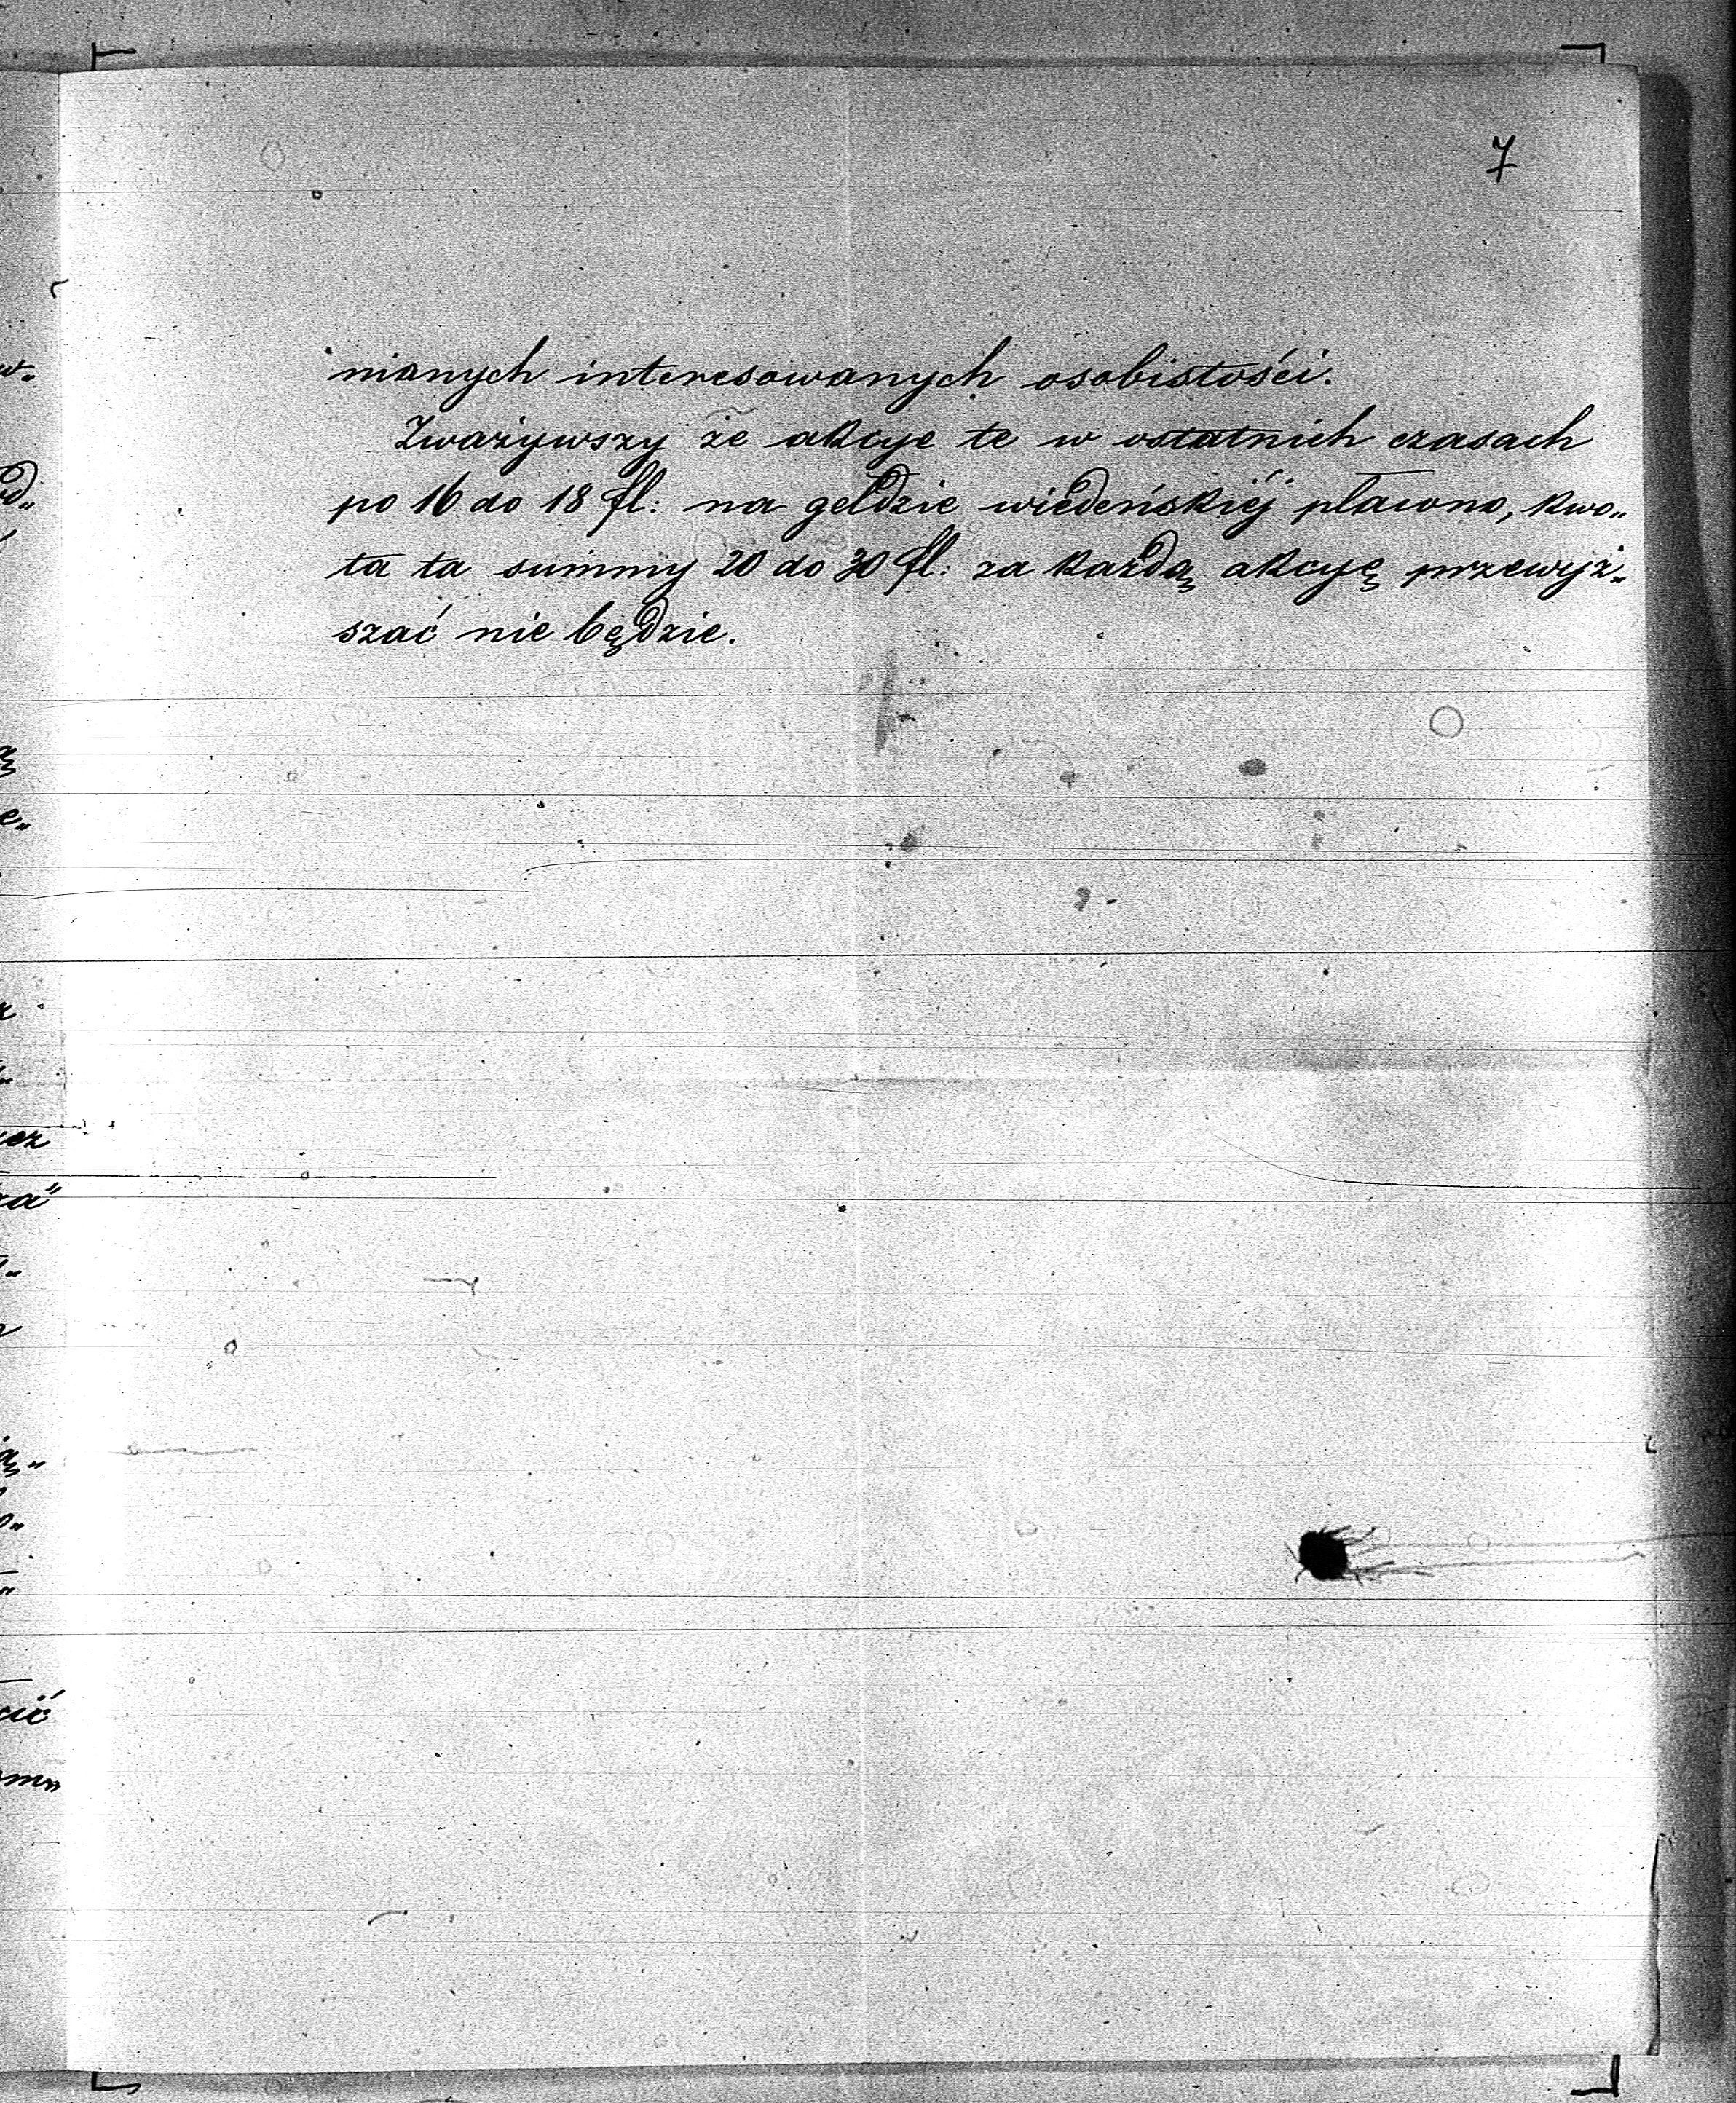 7
nianych interesowanych osobistości.
Zważywszy że akcye te w ostatnich czasach
po 16 do 18 fl: na geldzie wiedeńskiéj płacono, kwo„
ta ta summy 20 do 30 fl: za każdą akcyę przewyż„
szać nie będzie.